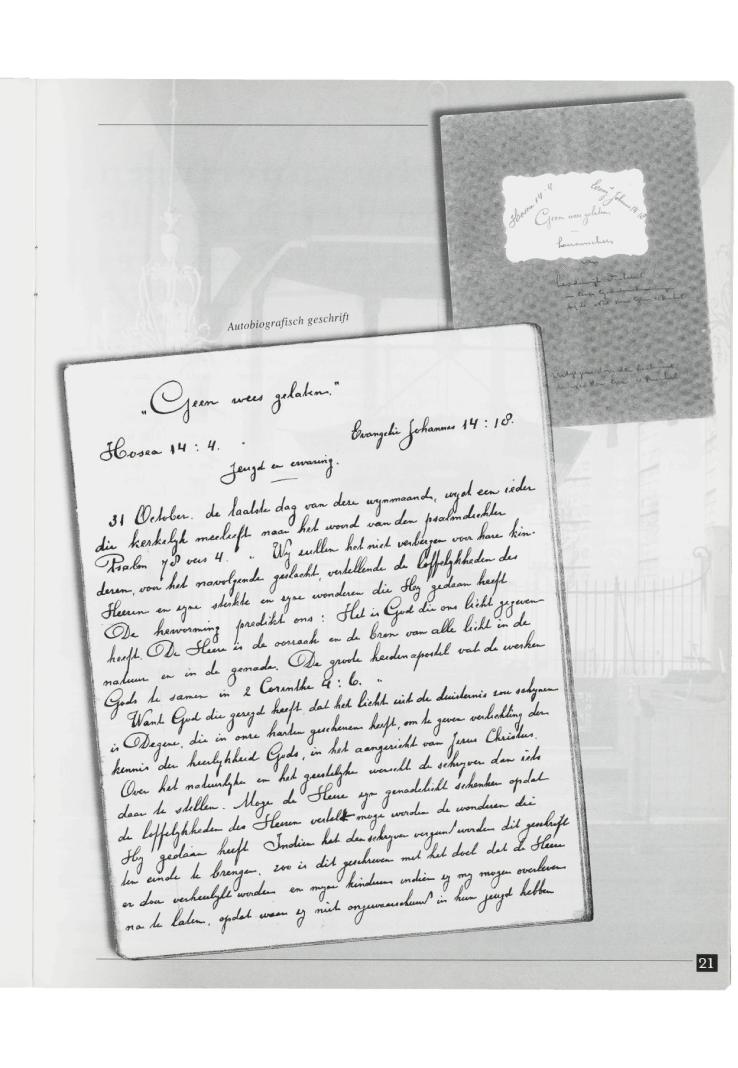 Hosea 14 : 4
Evang. Johannes 14 : 18
Geen wees gelaten
van
Autobiografisch geschrift
„Geen wees gelaten."
Hosea 14 : 4.
Evangelie Johannes 14 : 18.
Jeugd en ervaring.
31 October. de laatste dag van deze wynmaand, wyst een ieder
die kerkelyk meeleeft naar het woord van den psalmdichter
Psalm 78 vers 4. „ Wy zullen het niet verbergen voor hare kin-
deren, voor het navolgende geslacht, vertellende de loffelykheden des
Heeren en zyne sterkte en zyne wonderen die Hy gedaan heeft
De hervorming predikt ons : Het is God die ons licht gegeven
heeft. De Heere is de oorzaak en de bron van alle licht in de
natuur en in de genade. De groote heidenapostel vat de werken
Gods te samen in 2 Corinthe 4 : 6. „
Want God die gezegd heeft dat het licht uit de duisternis zou schynen
is Degene, die in onze harten geschenen heeft, om te geven verlichting der
kennis der heerlykheid Gods, in het aangezicht van Jezus Christus.
Over het natuurlyke en het geestelyke wenscht de schryver dan iets
daar te stellen. Moge de Heere zyn genadelicht schenken opdat
de loffelykheden des Heeren verteld moge worden de wonderen die
Hy gedaan heeft Indien het den schryver vergund worden dit geschrift
ten einde te brengen, zoo is dit geschreven met het doel dat de Heere
er door verheerlykt worden en myne kinderen indien zy my mogen overleven
na te laten, opdat waar zy niet ongewaarschuwd in hun jeugd hebben
21